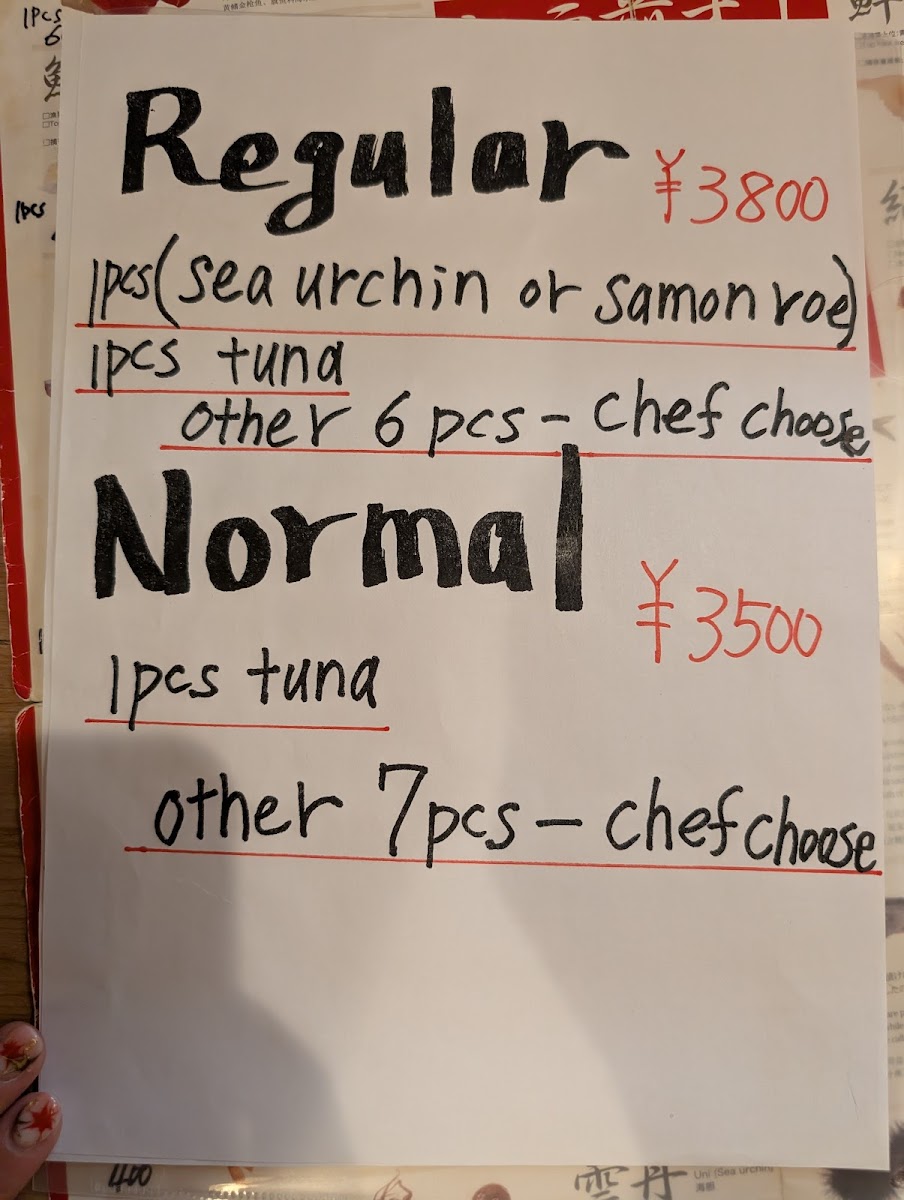 1pcs
Regular
¥3800
1pcs
1pcs(sea urchin or samon roe)
1pcs tuna
other 6 pcs - chef choose
Normal
¥3500
1pcs tuna
other 7pcs - chef choose
400
雲丹
Uni (Sea urchin)
海胆